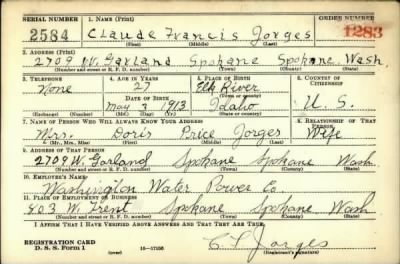 SERIAL NUMBER 1. NAME (Print) ORDER NUMBER
2584 Claude Francis Jorges 1283
(First) (Middle) (Last)
2. ADDRESS (Print)
2709 W. Garland Spokane Spokane Wash.
(Number and street or R. F. D. number) (Town) (County) (State)
3. TELEPHONE 4. AGE IN YEARS 5. PLACE OF BIRTH 6. COUNTRY OF CITIZENSHIP
None 27 Elk River U. S.
DATE OF BIRTH (Town or county)
May 3 1913 Idaho
(Exchange) (Number) (Mo.) (Day) (Yr.) (State or country)
7. NAME OF PERSON WHO WILL ALWAYS KNOW YOUR ADDRESS 8. RELATIONSHIP OF THAT PERSON
Mrs. Doris Price Jorges Wife
(Mr., Mrs., Miss) (First) (Middle) (Last)
9. ADDRESS OF THAT PERSON
2709 W. Garland Spokane Spokane Wash.
(Number and street or R. F. D. number) (Town) (County) (State)
10. EMPLOYER'S NAME
Washington Water Power Co.
11. PLACE OF EMPLOYMENT OR BUSINESS
803 W. Trent Spokane Spokane Wash
(Number and street or R. F. D. number) (Town) (County) (State)
I AFFIRM THAT I HAVE VERIFIED ABOVE ANSWERS AND THAT THEY ARE TRUE.
REGISTRATION CARD
D. S. S. Form 1 (over) 16-17105 C. F. Jorges
(Registrant's signature)